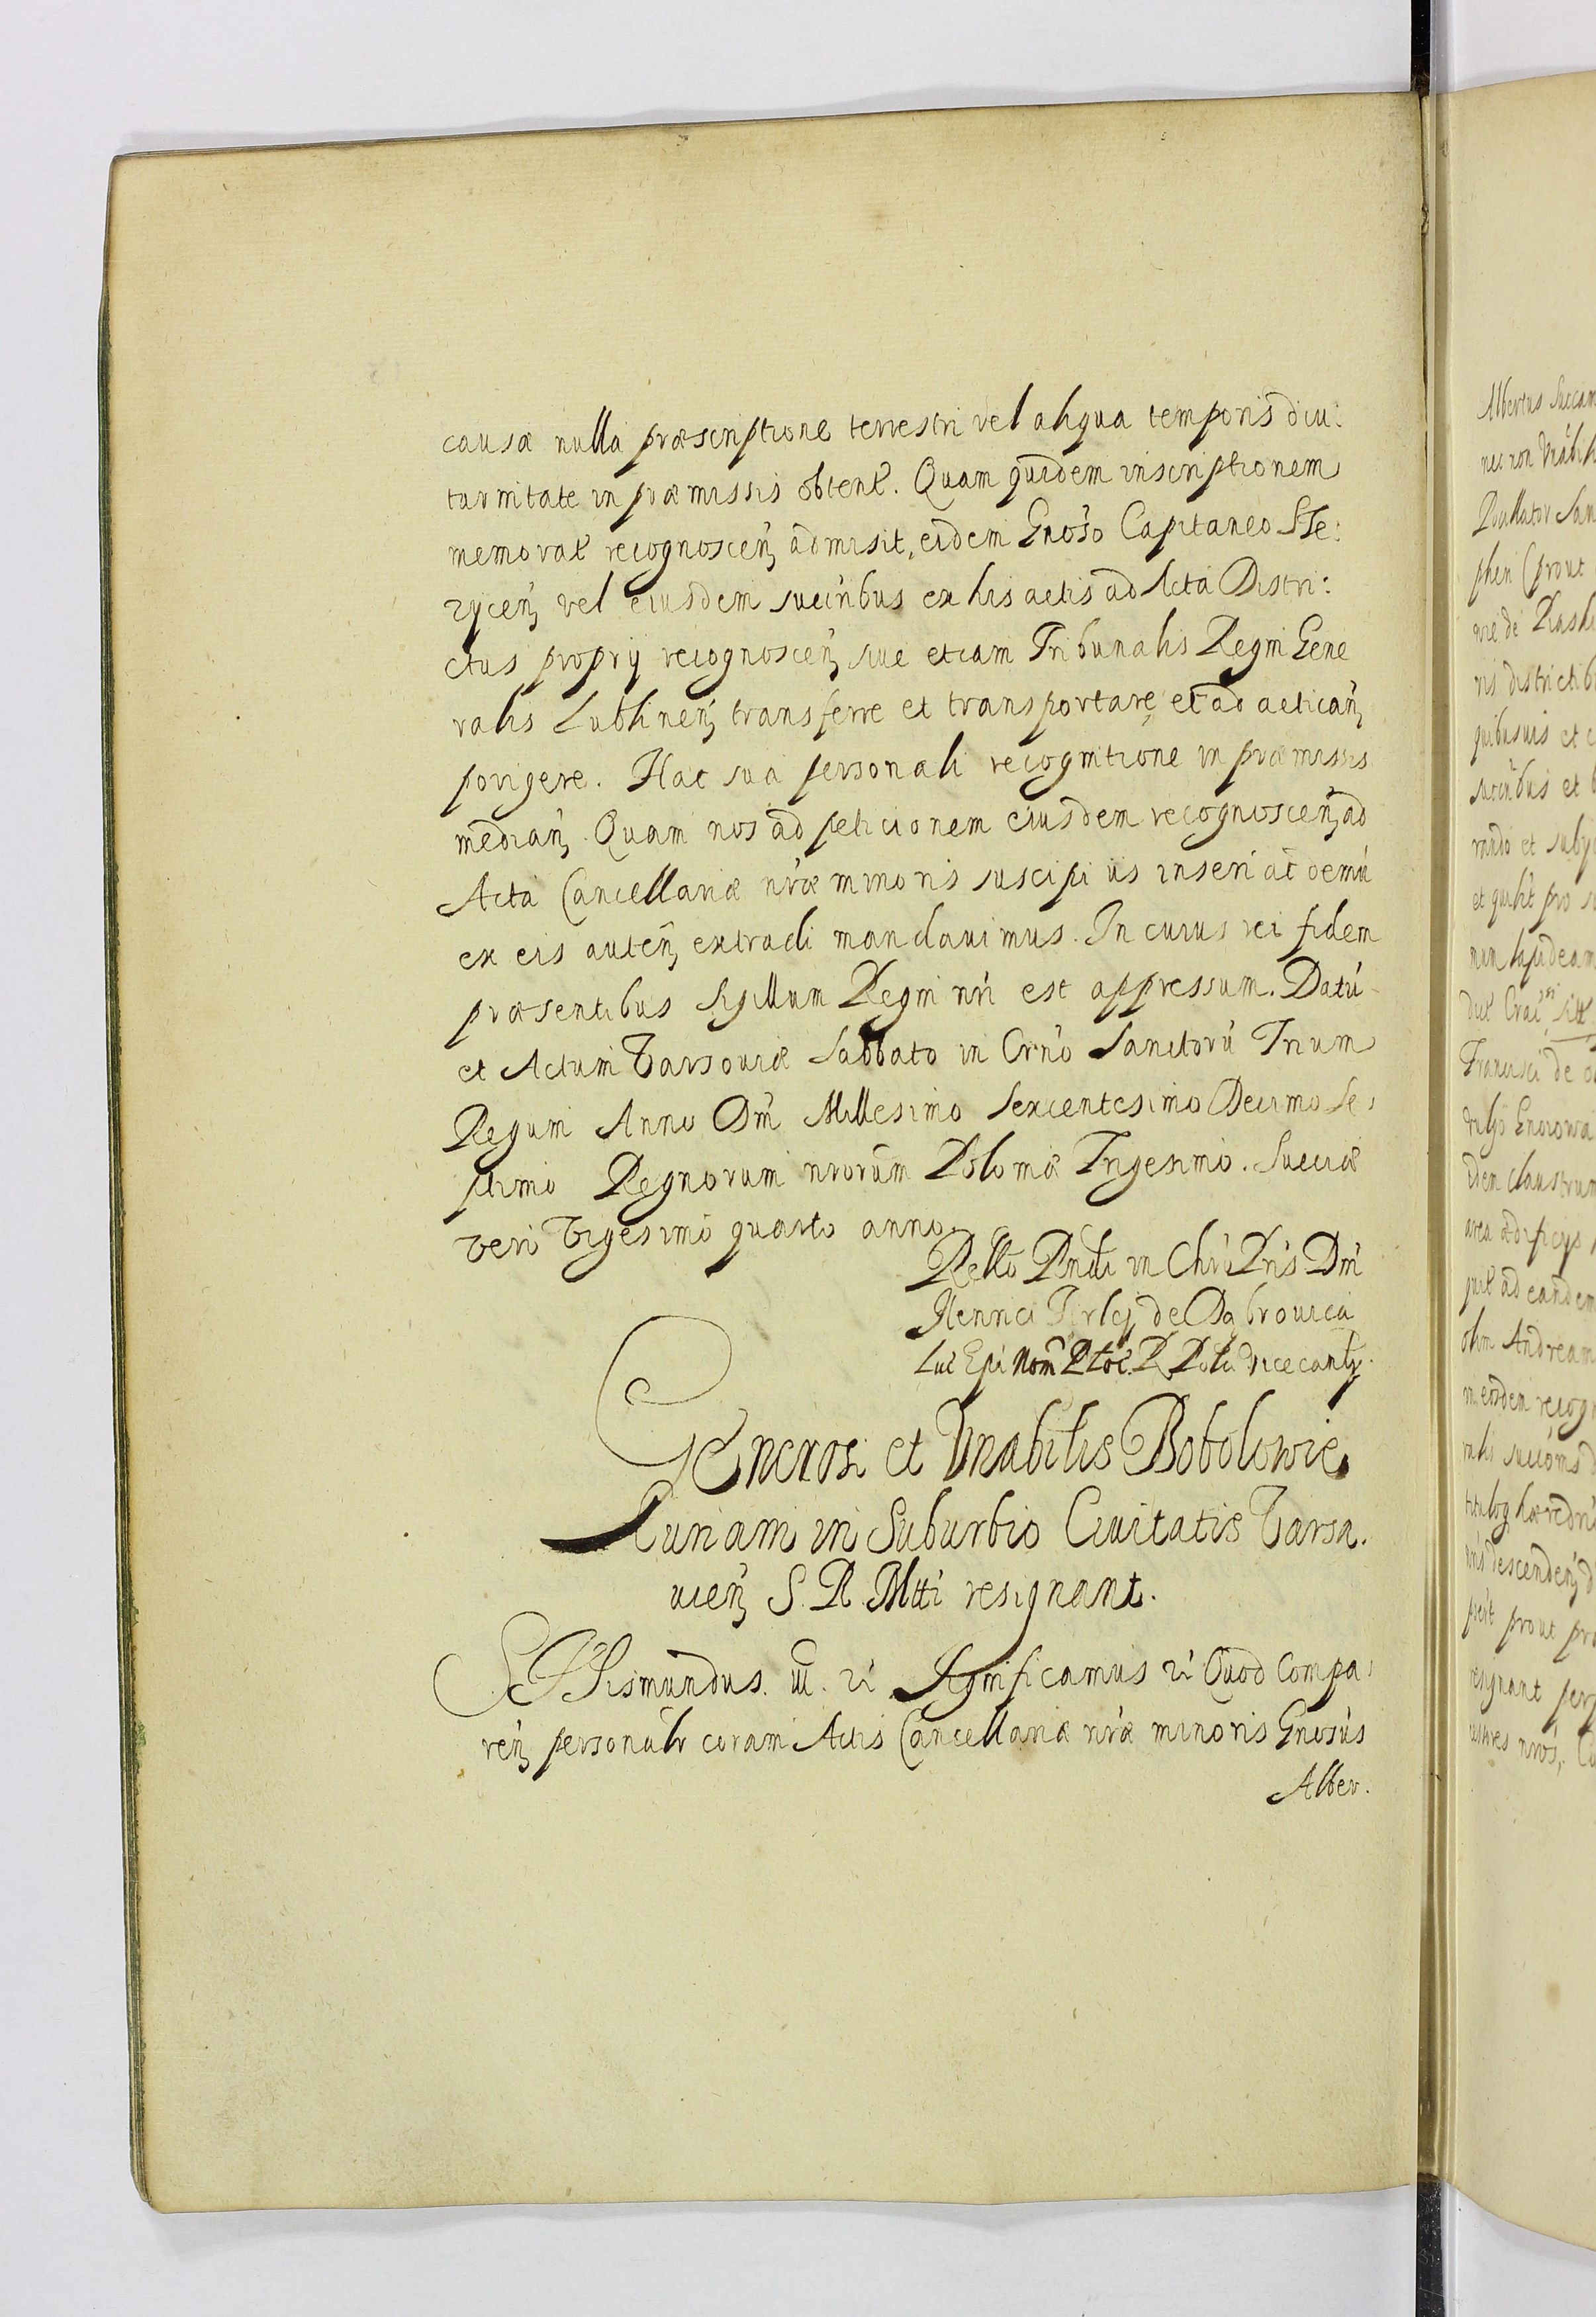 causæ nulla præscriptione terrestri vel aliqua temporis diu:
turnitate in præmissis obtent. Quam quidem inscriptionem
memorat recognoscen admisit, eidem Gnoso Capitaneo Ste:
zycen vel eiusdem succribus ex his actis ad Acta Distri:
ctus proprij recognoscen siue etiam Tribunalis Regni Gene
ralis Lublinen transferre et transportare et ad actican
porigere. Hac sua personali recognitione in præmissis
median. Quam nos ad peticionem eiusdem recognoscen ad
Acta Cancellariæ nræ minoris suscipi iis inseri ac demū
ex eis auten extradi mandauimus. In cuius rei fidem
præsentibus Sigillum Regni nri est appressum. Datū
et Actum Varsouiæ Sabbato in Crno Sanctorū Trium
Regum Anno Dni Millesimo Sexcentesimo Decimo Se
ptimo Regnorum nrorum Poloniæ Trigesimo. Sueciæ
vero Vigesimo quarto anno.
Rello Rndi in Chro Pris Dni
Henrici Firlej de Dąbrouica
Luc Epi Nom Ploc. R. Poło Vicecanly.
Generosi et Vnabilis Bobolowie
Curiam in Suburbio Ciuitatis Varsa.
uien S. R. Mtti resignant.
Sigismundus. III. zc Significamus zc Quod Compa
ren personalr coram Actis Cancellariæ nræ minoris Gnosus
Alber.
Albertus Succam
nec non
phen (prout
ris districtib
quibusuis et
succribus et
rando et subij
et quilit pro
Francisci de
Gnoiowa
iden claustrum
area ædificijs
ad eandem
olim Andream
in eosdem recog
descenden
prout
resignant per